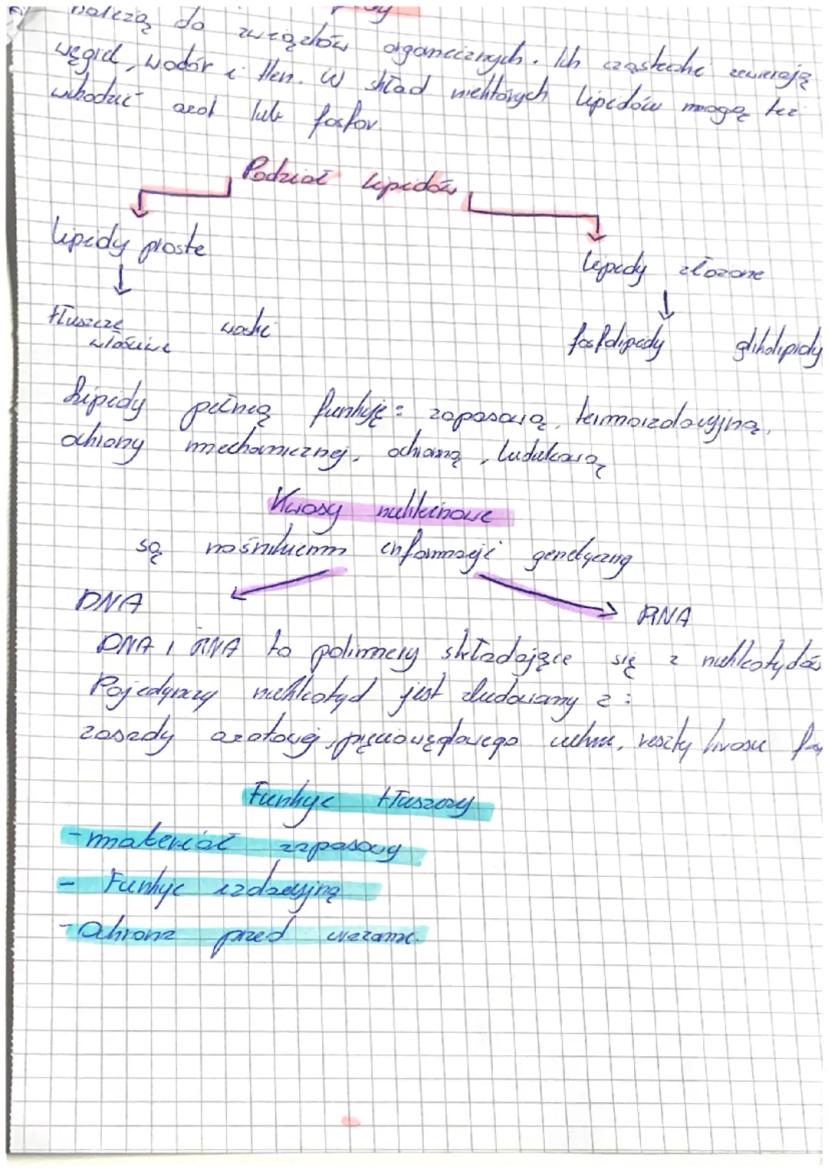 należą do związków organicznych. Ich cząsteczki zawierają
węgiel, wodór i tlen. W skład niektórych lipidów mogą też
wchodzić azot lub fosfor
Podział lipidów
lipidy proste
lipidy złożone
tłuszcze woski
właściwe
fosfolipidy glikolipidy
Lipidy pełnią funkcję: zapasową, termoizolacyjną,
ochrony mechanicznej, ochronną, budulcową
Kwasy nukleinowe
są nośnikiem informacji genetycznej
DNA
RNA
DNA i RNA to polimery składające się z nukleotydów
Pojedynczy nukleotyd jest zbudowany z:
zasady azotowej, pięciowęglowego cukru, reszty kwasu
Funkcje tłuszczy
- materiał zapasowy
- Funkcje izolacyjną
- Ochrona przed urazami.